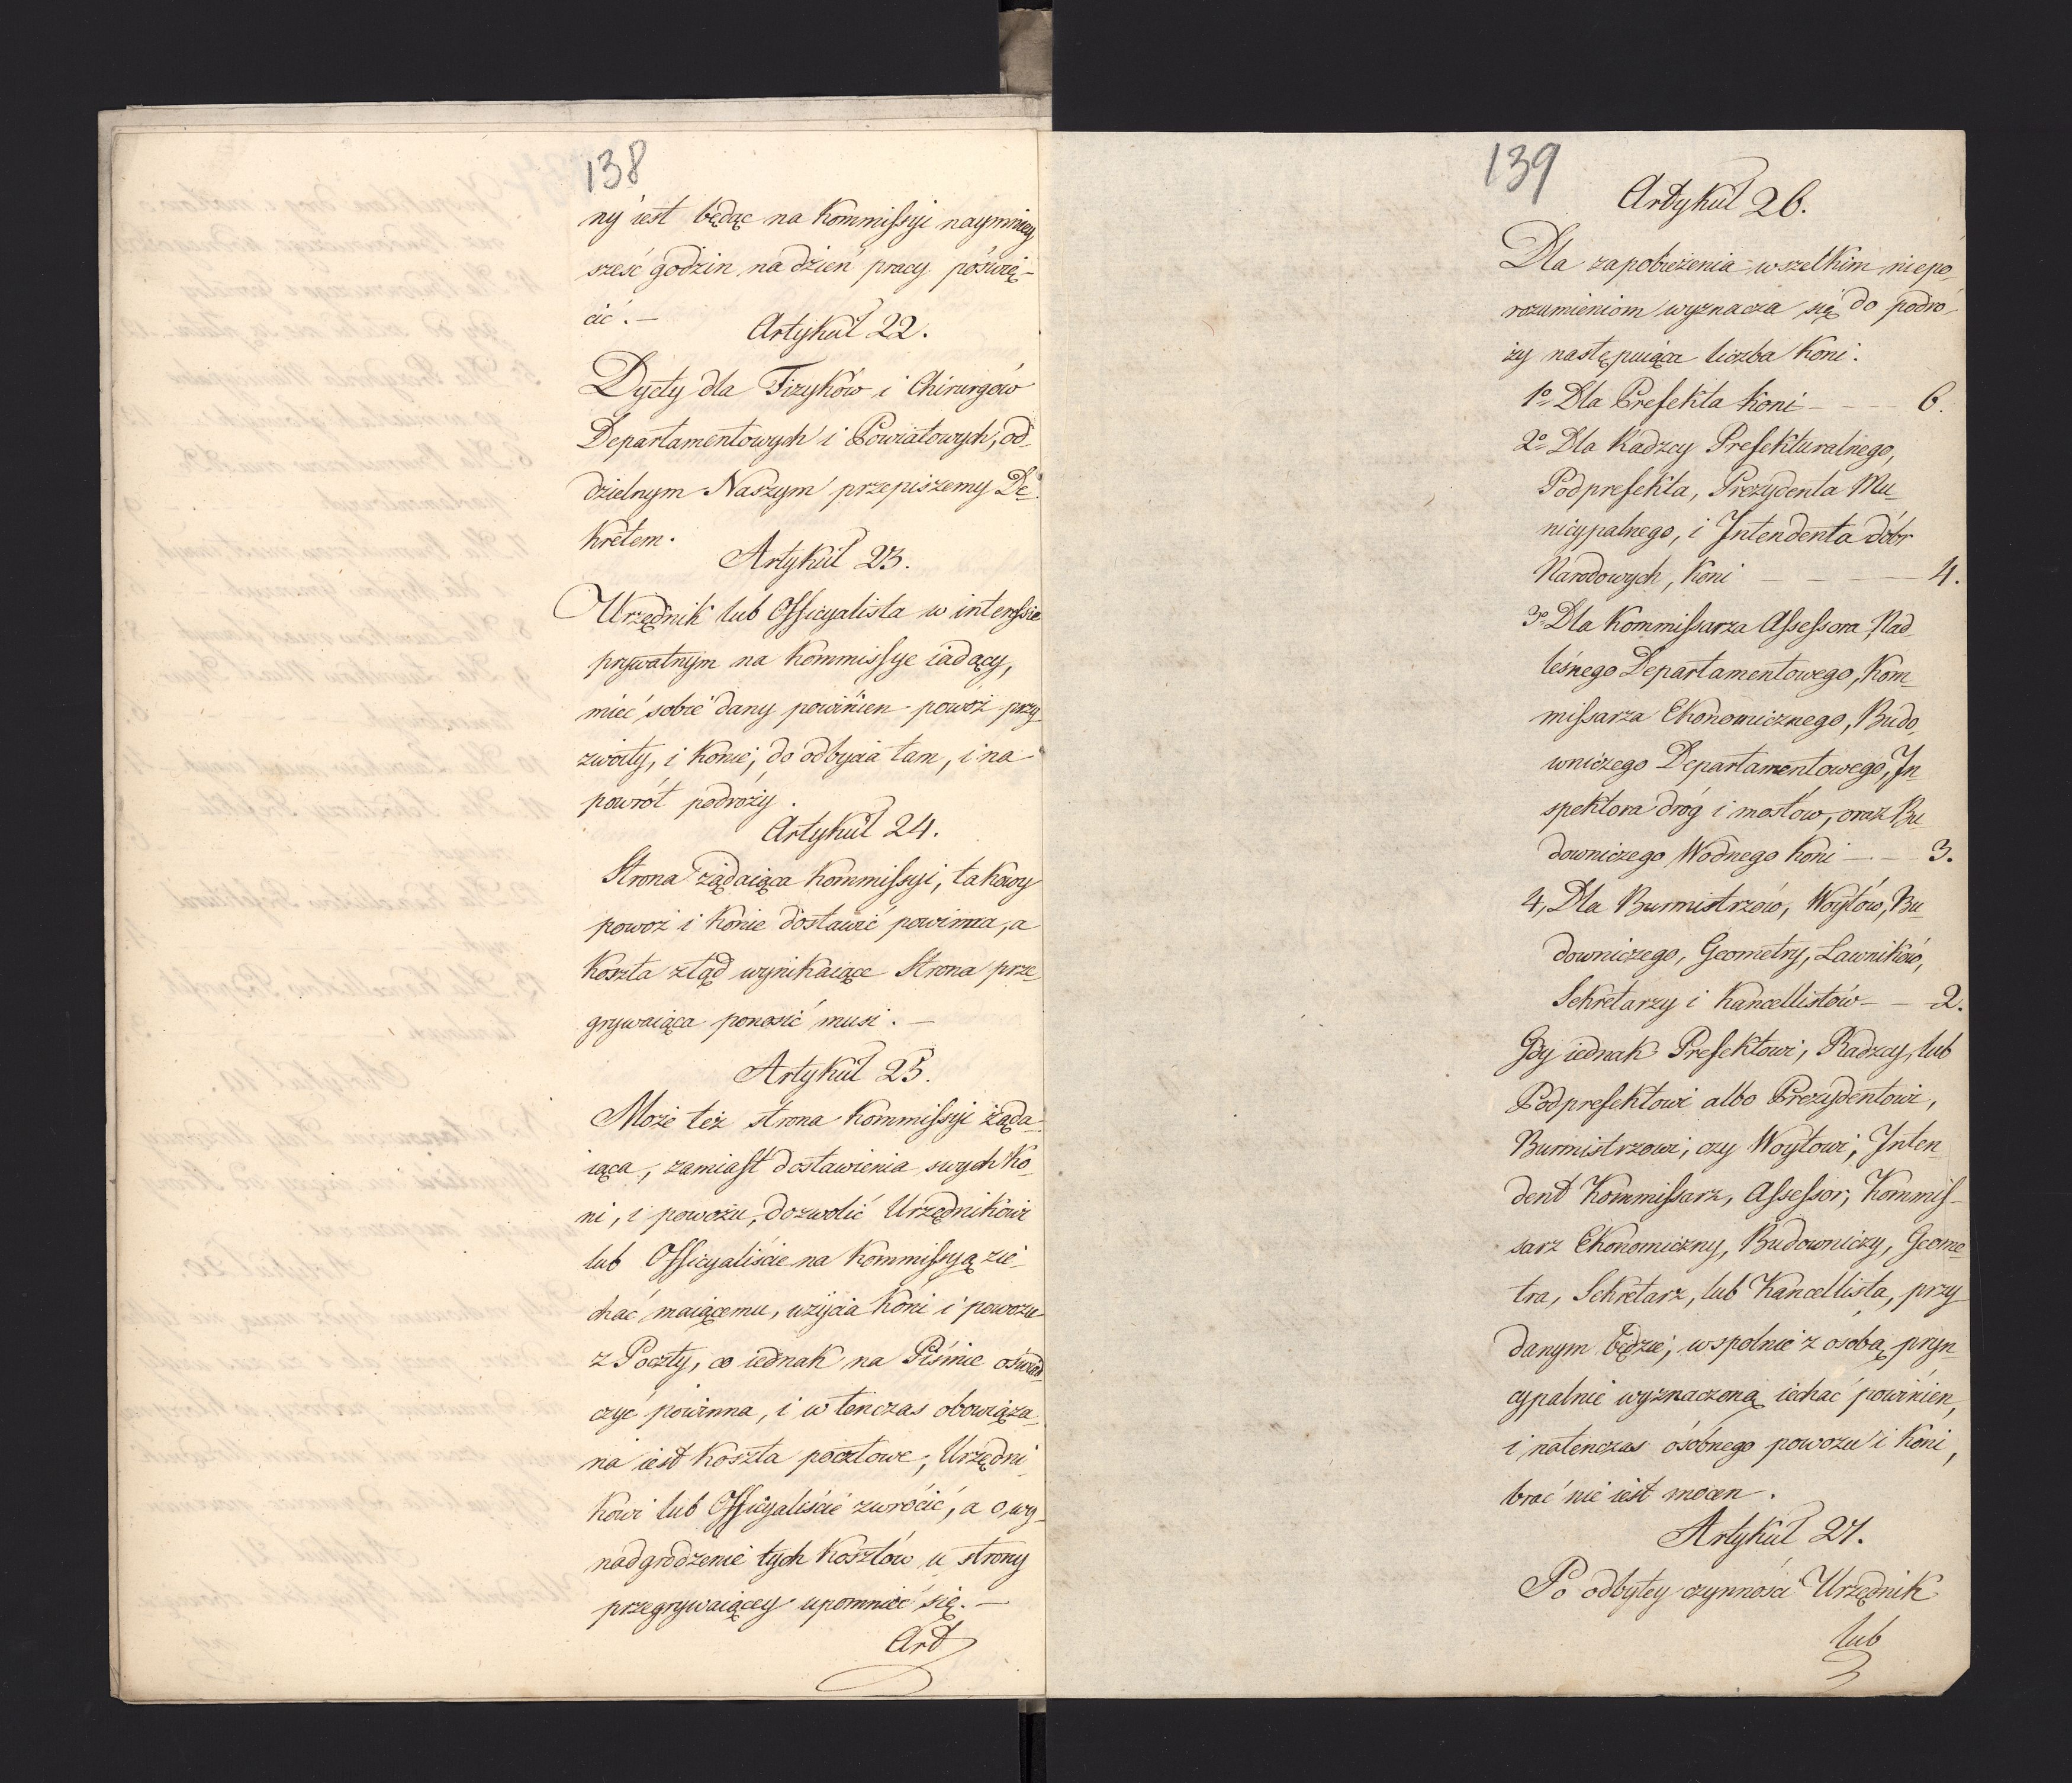 138
ny iest będąc na Kommissyi naymniey
sześć godzin na dzień pracy poświę-
cić. —
Artykuł 22.
Dyety dla Fizyków i Chirurgów
Departamentowych i Powiatowych, od-
dzielnym Naszym przepiszemy De-
kretem.
Artykuł 23.
Urzędnik lub Officyalista w interessie
prywatnym na Kommissye iadący,
mieć sobie dany powinien powóz przy-
zwoity, i konie, do odbycia tam, i na
powrót podroży.
Artykuł 24.
Strona żądaiąca Kommissyi, takowy
powoz i konie dostawić powinna, a
koszta ztąd wynikaiące Strona prze-
grywaiąca ponosić musi. —
Artykuł 25.
Może też strona Kommissyi żąda-
iąca, zamiast dostawienia swych Ko-
ni, i powozu, dozwolić Urzędnikowi
lub Officyaliście na Kommissyą zie-
chać maiącemu, użycia koni i powozu
z Poczty, co iednak na Piśmie oświad-
czyć powinna, i w tenczas obowiąza-
na iest koszta pocztowe, Urzędni-
kowi lub Officyaliście zwrócić, a o wy-
nadgrodzenie tych kosztów u strony
przegrywaiącey upomnieć się. —
Art
139
Artykuł 26.
Dla zapobieżenia wszelkim niepo-
rozumieniom wyznacza się do podró-
ży następuiąca liczba Koni.
1o Dla Prefekta koni - - - - 6.
2o Dla Radzcy Prefekturalnego,
Podprefekta, Prezydenta Mu-
nicypalnego, i Intendenta dóbr
Narodowych, koni - - - - 4.
3o Dla Kommissarza Assessora Nad-
leśnego Departamentowego, Kom-
missarza Ekonomicznego, Budo-
wniczego Departamentowego, In-
spektora dróg i mostów, oraz Bu-
downiczego Wodnego koni - - - 3.
4, Dla Burmistrzów, Woytów, Bu-
downiczego, Geometry, Ławników,
Sekretarzy i Kancellistów - - 2.
Gdy iednak Prefektowi, Radzcy, lub
Podprefektowi albo Prezydentowi,
Burmistrzowi, czy Woytowi, Inten-
dent Kommissarz, Assessor, Kommis-
sarz Ekonomiczny, Budowniczy, Geome-
tra, Sekretarz, lub Kancellista, przy-
danym będzie, wspolnie z osobą pryn-
cypalnie wyznaczoną iechać powinien,
i natenczas osobnego powozu i koni,
brać nie iest mocen.
Artykuł 27.
Po odbytey czynności Urzędnik
lub